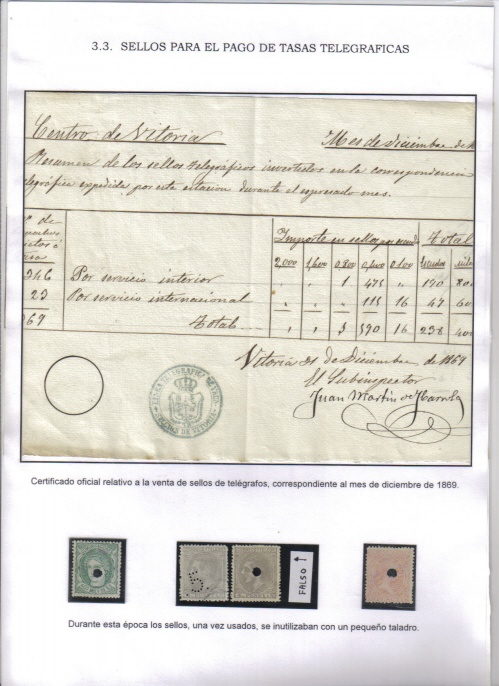 3.3. SELLOS PARA EL PAGO DE TASAS TELEGRAFICAS
Centro de Vitoria Mes de diciembre de
Resumen de los sellos telegráficos invertidos en la correspondencia
telegráfica expedida por esta estacion durante el espresado mes.
Importe en sellos Total
2,000 1,600 0,800 0,400 0,100 Escudos
346 Por servicio interior " " 1 475 " 190 80
23 Por servicio internacional " " " 115 16 47 60
369 Total " " 590 16 238 40
Vitoria 31 de Diciembre de 1869
El Subinspector
Juan Martin de
DE VITORIA
Certificado oficial relativo a la venta de sellos de telégrafos, correspondiente al mes de diciembre de 1869.
FALSO ↑
Durante esta época los sellos, una vez usados, se inutilizaban con un pequeño taladro.